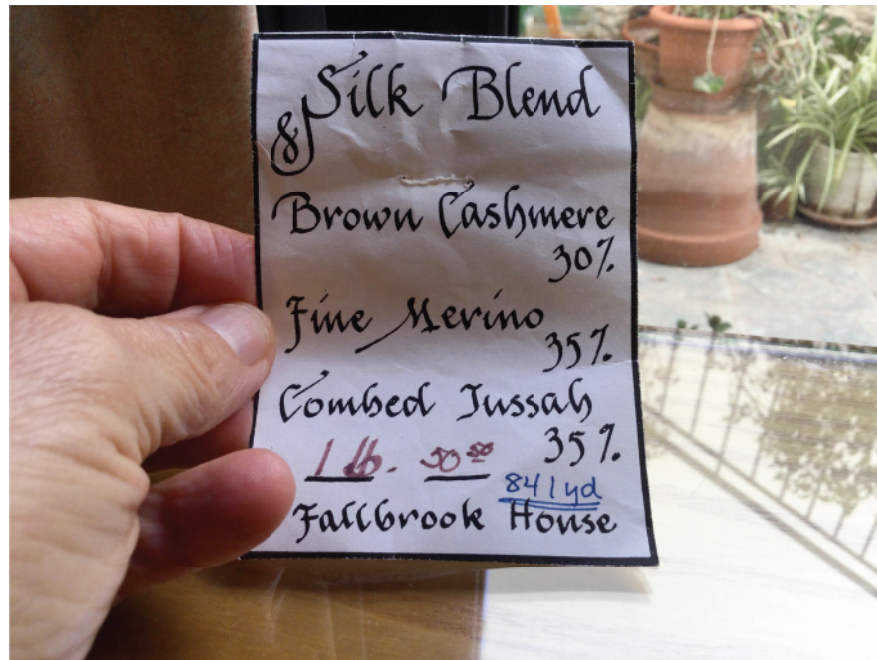 Silk Blend
&
Brown Cashmere
30%
Fine Merino
35%
Combed Tussah
35%
1 lb. 50 50
841 yd
Fallbrook House